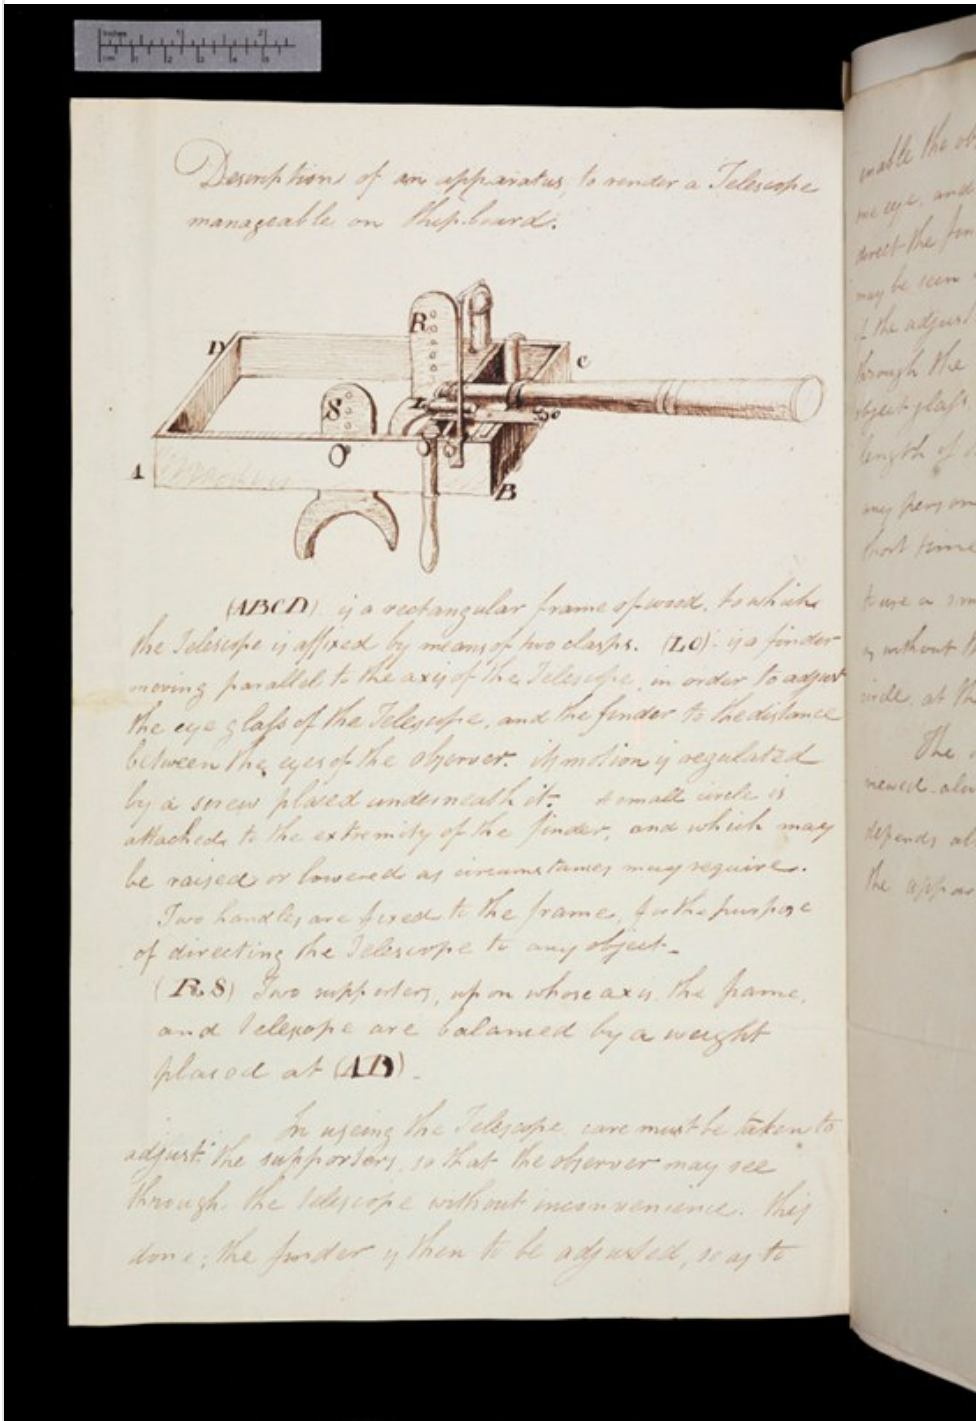 Inches 1 2
cm 1 2 3 4 5
Description of an apparatus, to render a Telescope
manageable on shipboard.
R
D
C
S
L
o
A
B
(ABCD) is a rectangular frame of wood, to which
the Telescope is affixed by means of two clasps. (LO) is a finder
moving parallel to the axis of the Telescope, in order to adjust
the eye glass of the Telescope, and the finder to the distance
between the eyes of the observer. its motion is regulated
by a screw placed underneath it. A small circle is
attached to the extremity of the finder, and which may
be raised or lowered as circumstances may require.
Two handles are fixed to the frame, for the purpose
of directing the Telescope to any object.
(R.S) Two supporters, upon whose axis, the frame,
and Telescope are balanced by a weight
placed at (AD).
In useing the Telescope, care must be taken to
adjust the supporters, so that the observer may see
through the telescope without inconvenience. this
done; the finder is then to be adjusted, so as to
enable the
the eye, and
direct the
may be seen
if the adjust
through the
object glass
length of
any person
short time
to use a
as without
at the
The
viewed
depends
the appar